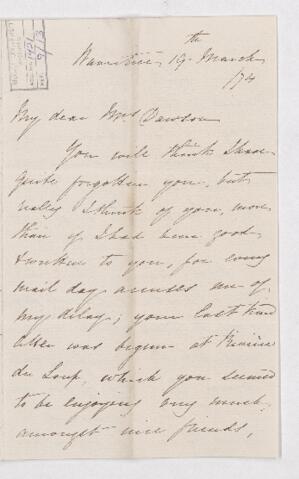 19th March
/74
My dear Mrs Dawson
You will think I have
quite forgotten you, but
really I think of you, more
than if I had been good
& written to you, for every
mail day accuses me of
my delay; your last kind
letter was begun at Rivière
du Loup, which you seemed
to be enjoying very much
amongst nice friends,